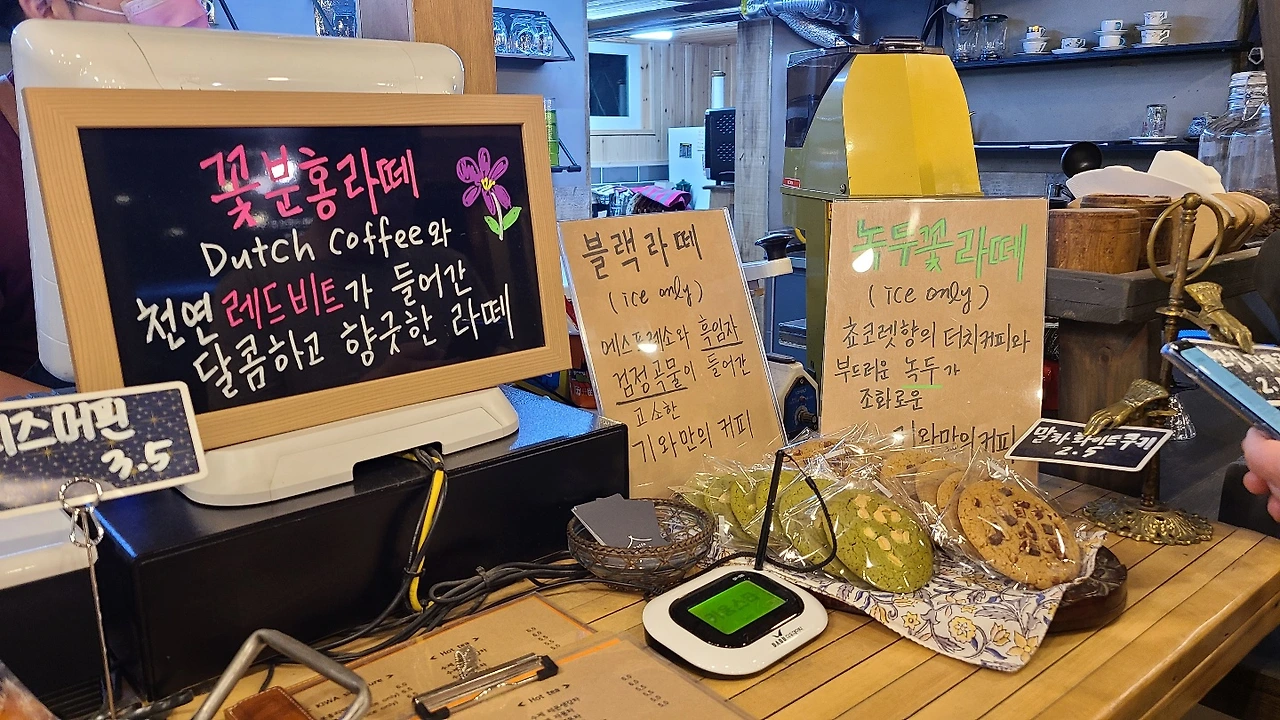 꽃분홍라떼
Dutch Coffee와
천연 레드비트가 들어간
달콤하고 향긋한 라떼
즈머핀
3.5
블랙라떼
(ice only)
에스프레소와 흑임자
검정곡물이 들어간
고소한
기와만의 커피
녹두꽃라떼
(ice only)
쵸코렛향의 더치커피와
부드러운 녹두가
조화로운
기와만의커피
말차,화이트쿠키
2.5
< Hot
KIWA
< Hot tea >